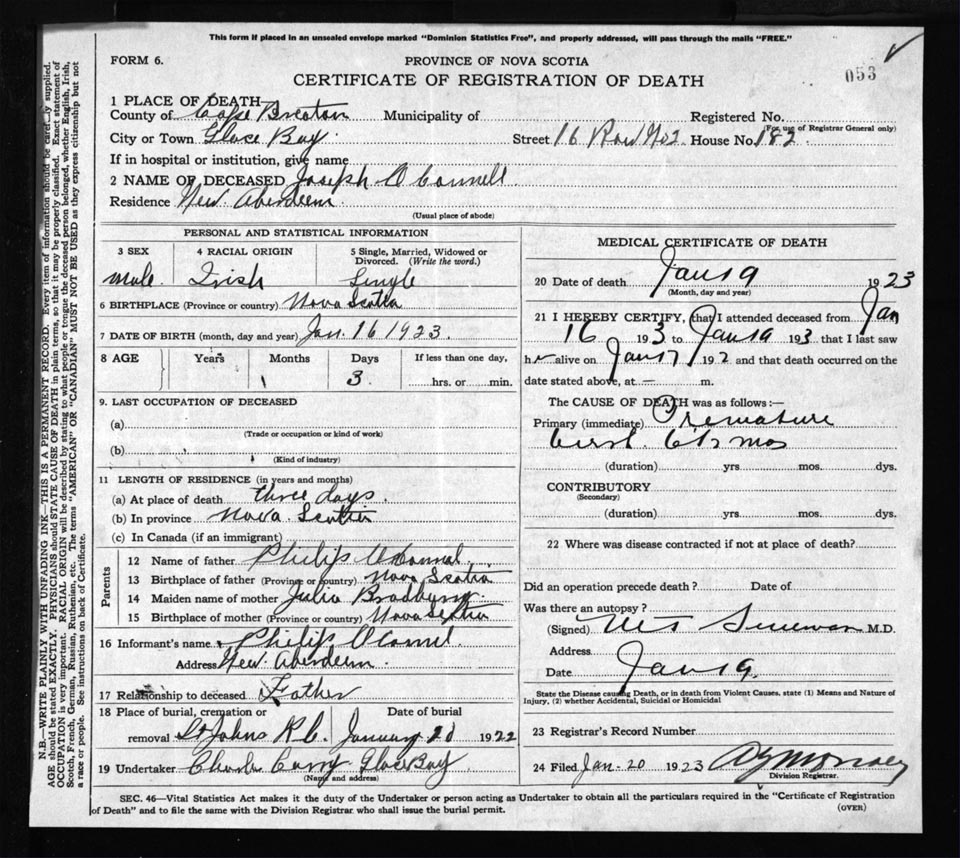 This form if placed in an unsealed envelope marked "Dominion Statistics Free", and properly addressed, will pass through the mails "FREE."
FORM 6.
PROVINCE OF NOVA SCOTIA
053
CERTIFICATE OF REGISTRATION OF DEATH
1 PLACE OF DEATH
County of Cape Breton Municipality of Registered No.
(For use of Registrar General only)
City or Town Glace Bay Street 16 Row No 2 House No. 182
If in hospital or institution, give name
2 NAME OF DECEASED Joseph O Connell
Residence New Aberdeen
(Usual place of abode)
PERSONAL AND STATISTICAL INFORMATION
3 SEX 4 RACIAL ORIGIN 5 Single, Married, Widowed or Divorced. (Write the word.)
male Irish Single
6 BIRTHPLACE (Province or country) Nova Scotia
7 DATE OF BIRTH (month, day and year) Jan. 16 1923.
8 AGE Years Months Days If less than one day,
3 hrs. or min.
9. LAST OCCUPATION OF DECEASED
(a)
(Trade or occupation or kind of work)
(b)
(Kind of industry)
11 LENGTH OF RESIDENCE (in years and months)
(a) At place of death three days
(b) In province Nova Scotia
(c) In Canada (if an immigrant)
Parents
12 Name of father Philip O Connel
13 Birthplace of father (Province or country) Nova Scotia
14 Maiden name of mother Julia
15 Birthplace of mother (Province or country) Nova Scotia
16 Informant's name Philip O Connel
Address New Aberdeen
17 Relationship to deceased Father
18 Place of burial, cremation or removal St Johns R.C. Date of burial January 1922
19 Undertaker Charles Curry Glace Bay
(Name and address)
MEDICAL CERTIFICATE OF DEATH
20 Date of death Jan 19 1923
(Month, day and year)
21 I HEREBY CERTIFY, that I attended deceased from Jan
16 193 to Jan 19 193 that I last saw
h alive on Jan 17 192 and that death occurred on the
date stated above, at — m.
The CAUSE OF DEATH was as follows:—
Primary (immediate) Premature
birth 6½ mos
(duration) yrs. mos. dys.
CONTRIBUTORY
(Secondary)
(duration) yrs. mos. dys.
22 Where was disease contracted if not at place of death?
Did an operation precede death? Date of
Was there an autopsy?
(Signed) M.D.
Address
Date Jan 19.
State the Disease causing Death, or in death from Violent Causes, state (1) Means and Nature of
Injury, (2) whether Accidental, Suicidal or Homicidal
23 Registrar's Record Number
24 Filed Jan-20 1923
Division Registrar.
SEC. 46—Vital Statistics Act makes it the duty of the Undertaker or person acting as Undertaker to obtain all the particulars required in the "Certificate of Registration
of Death" and to file the same with the Division Registrar who shall issue the burial permit.
(OVER)
N.B.—WRITE PLAINLY WITH UNFADING INK—THIS IS A PERMANENT RECORD. Every item of information should be carefully supplied.
AGE should be stated EXACTLY. PHYSICIANS should STATE CAUSE OF DEATH in plain terms, so that it may be properly classified. Exact statement of
OCCUPATION is very important. RACIAL ORIGIN will be described by stating to what people or tongue the deceased person belonged, whether English, Irish,
Scotch, French, German, Russian, Ruthenian, etc. The terms "AMERICAN" OR "CANADIAN" MUST NOT BE USED as they express citizenship but not
a race or people. See instructions on back of Certificate.